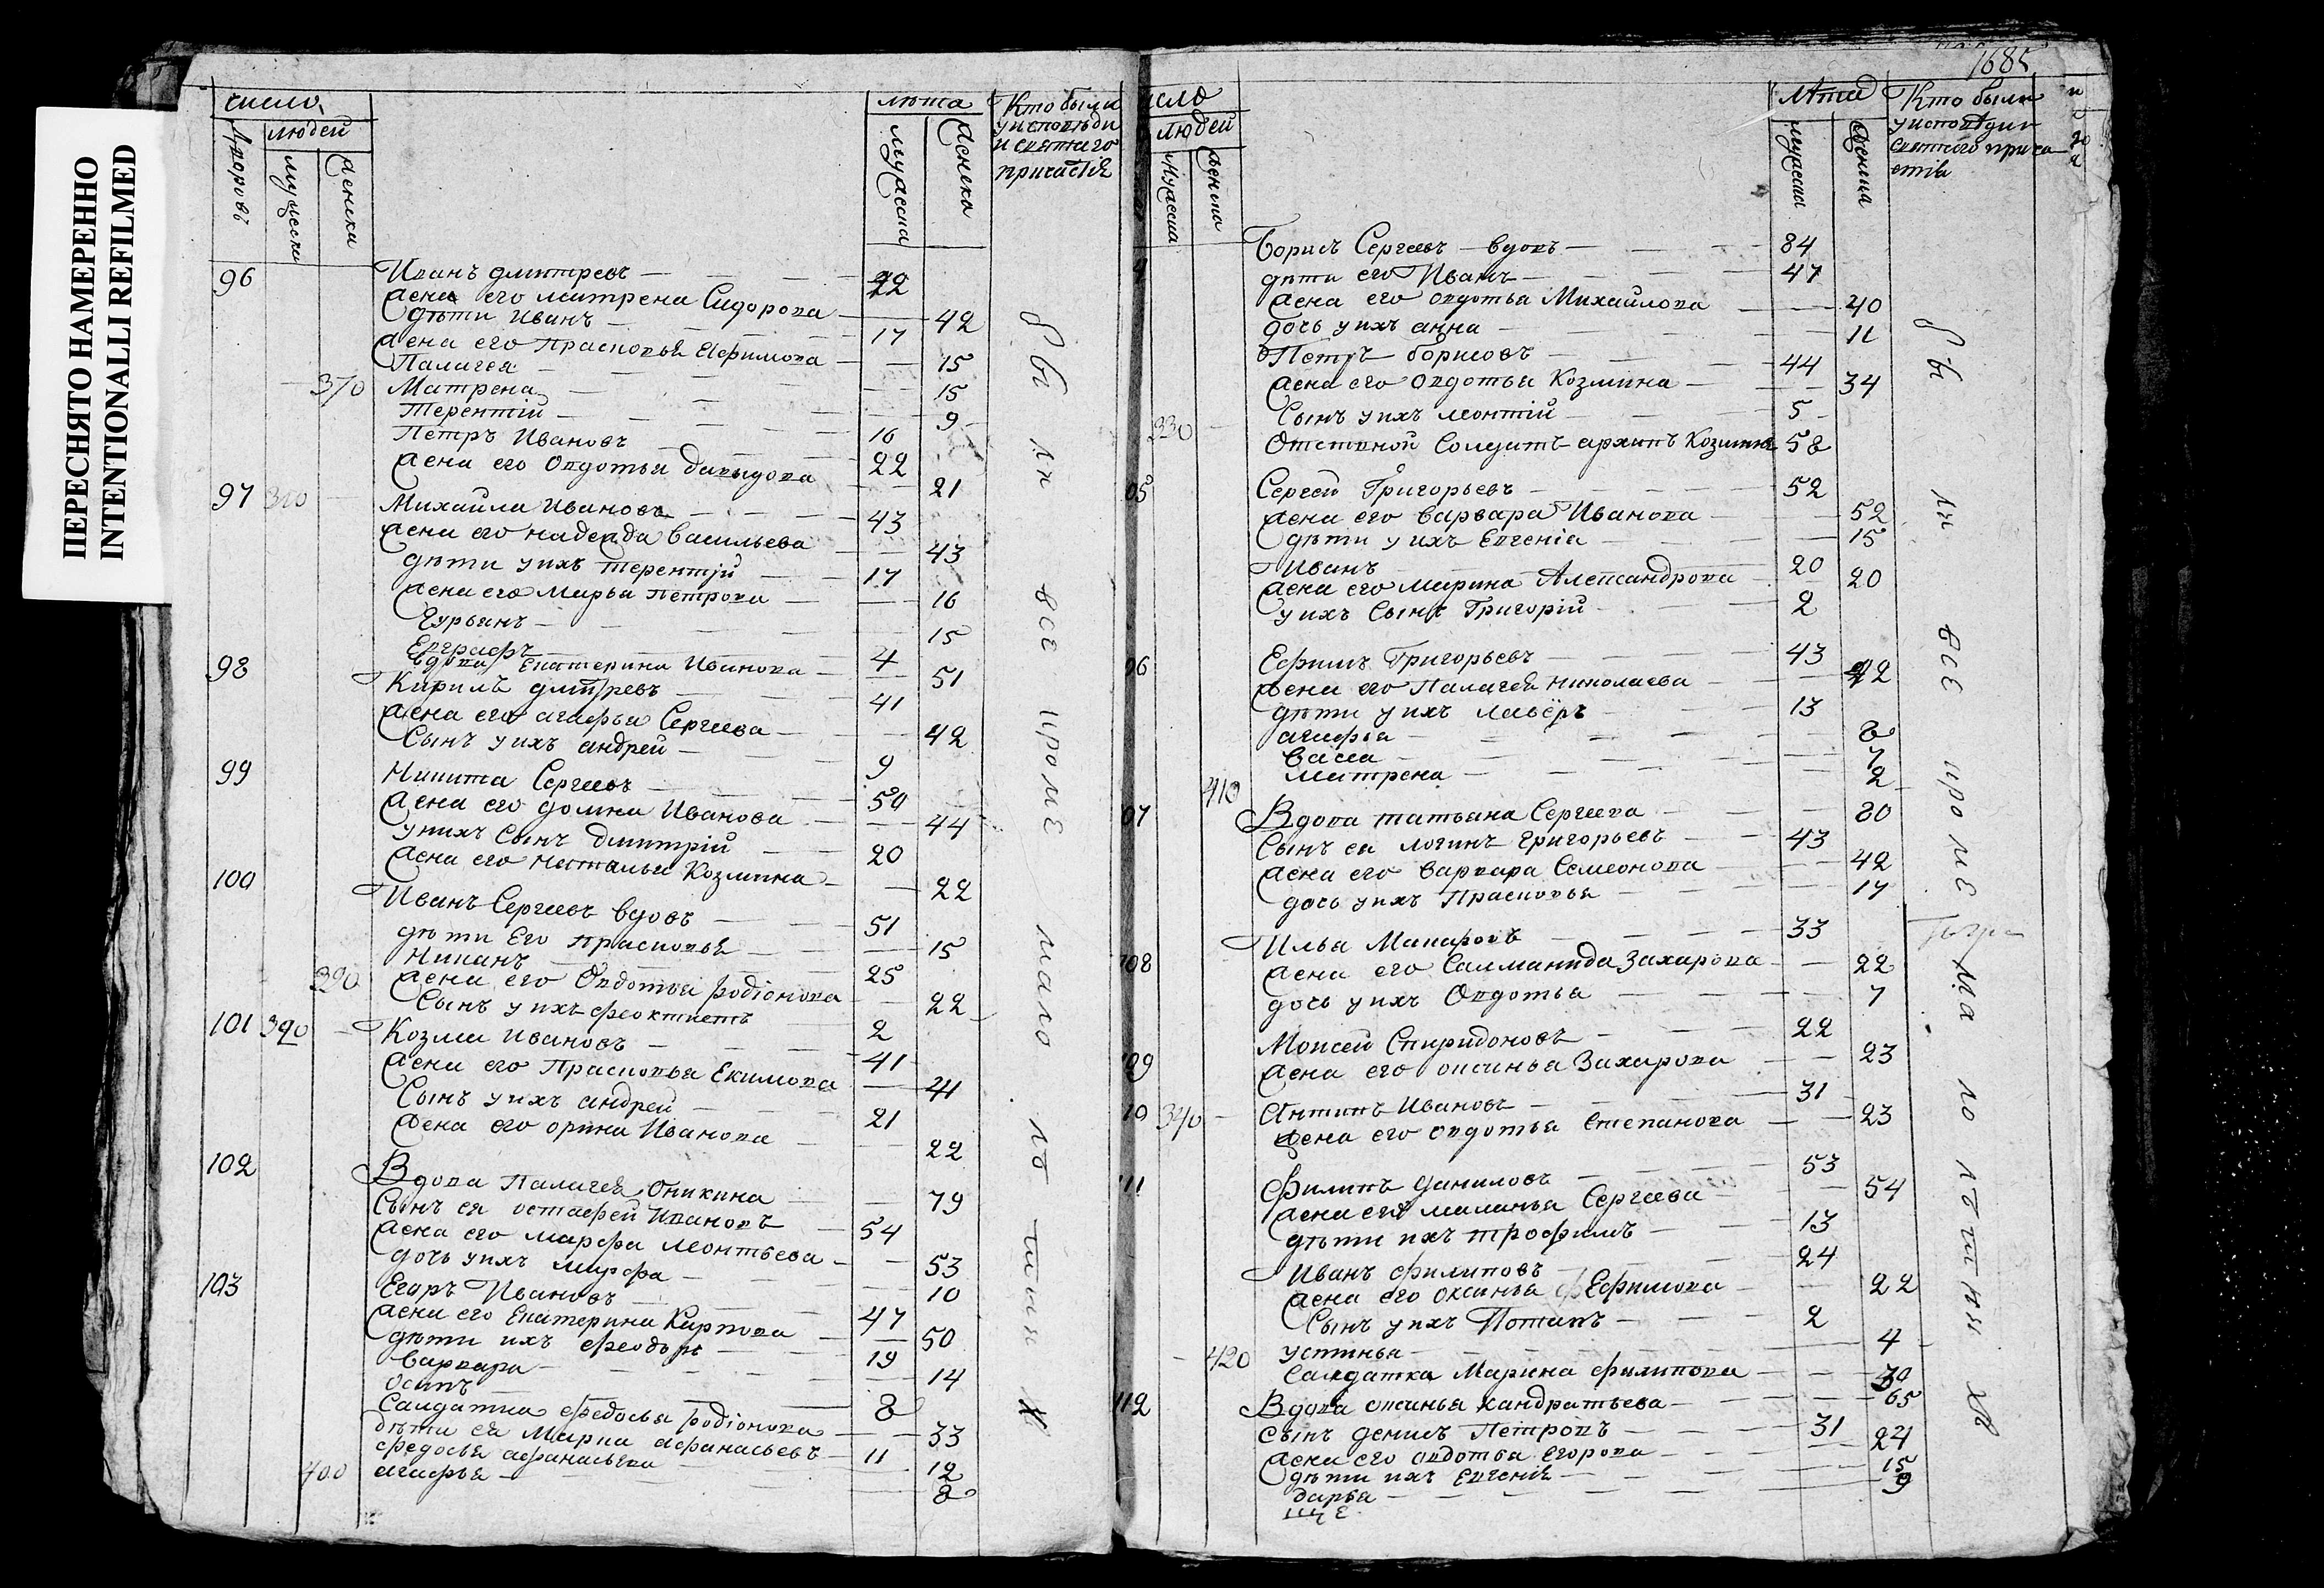 ПЕРЕСНЯТО НАМЕРЕННО
INTENTIONALLI REFILMED
число
людей
дворовъ
мужеска
женска
лѣта
мужеска
женска
Кто были
у исповѣди
и святаго
причастія
96 Иванъ дмитревъ 42
жена его матрена Сидорова 42
дѣти Иванъ 17
жена его Прасковья Ефимова 15
Палагея 15
370 Матрена 9
Терентій 16
Петръ Ивановъ 22
жена его Овдотья давыдова 21
97 Михайла Ивановъ 43
жена его надежда васильева 43
дѣти у ихъ терентій 17
жена его Марья петрова 16
Гурьянъ 15
Евграфъ 4
вдова Екатерина Иванова 51
98 Кирилъ дмитревъ 41
жена его агафья Сергеева 42
Сынъ у ихъ андрей 9
99 Никита Сергеевъ 50
жена его домна Иванова 44
у нихъ Сынъ дмитрій 20
жена его наталья Козмина 22
100 Иванъ Сергеевъ вдовъ 51
дѣти Его прасковья 15
25
390 жена его Овдотья родіонова 22
Сынъ у ихъ феоктистъ 2
101 390 Козма Ивановъ 41
жена его Прасковья Екимова 41
Сынъ у ихъ андрей 21
жена его орина Иванова 22
102 Вдова Палагея Оникина 79
Сынъ ея остафей Ивановъ 54
жена его марфа леонтьева 53
дочь у ихъ марфа 10
103 Егоръ Ивановъ 47
жена его Екатерина Карпова 50
дѣти ихъ феодоръ 19
варвара 14
осипъ 8
Салдатка федосья родіонова 33
дѣти ея Марки афанасьевъ 11
федосья афанасьева 12
400 агафья 8
бы ли все кроме мало лѣтни х
1685
число
людей
мужеска
женска
лѣта
мужеска
женска
Кто были
у исповѣди
святаго прича
стія
Борисъ Сергеевъ вдовъ 84
дѣти его Иванъ 47
жена его овдотья Михайлова 40
дочь у ихъ анна 11
Петръ борисовъ 44
жена его Овдотья Козмина 34
Сынъ у ихъ леонтій 5
Отставной Солдатъ архипъ Козминъ 58
05 Сергей Григорьевъ 52
жена его варвара Иванова 52
дѣти у ихъ Евгенія 15
Иванъ 20
жена его марина Александрова 20
у ихъ Сынъ Григорій 2
06 Ефимъ Григорьевъ 43
жена его Палагея николаева 42
дѣти у ихъ лавёръ 13
агафья 8
васса 7
410 матрена 2
07 Вдова татьяна Сергеева 80
Сынъ ея логинъ григорьевъ 43
жена его варвара Семеонова 42
дочь у ихъ Прасковья 17
108 Илья Макаровъ 33
жена его Саламанида Захарова 22
дочь у ихъ Овдотья 7
109 Моисей Спиридоновъ 22
жена его оксинья Захарова 23
10 340 Антипъ Ивановъ 31
жена его овдотья степанова 23
111 Филипъ даниловъ 53
жена его маланья Сергеева 54
дѣти ихъ трофимъ 13
Иванъ филиповъ 24
жена его оксинья Ефимова 22
Сынъ у ихъ Потапъ 2
420 устинья 4
Салдатка Марина филипова 30
112 Вдова оксинья кандратьева 65
сынъ денисъ Петровъ 31
жена его овдотья егорова 24
дѣти ихъ евгенія 15
дарья 9
бы ли все кроме ма ло лѣтни хъ